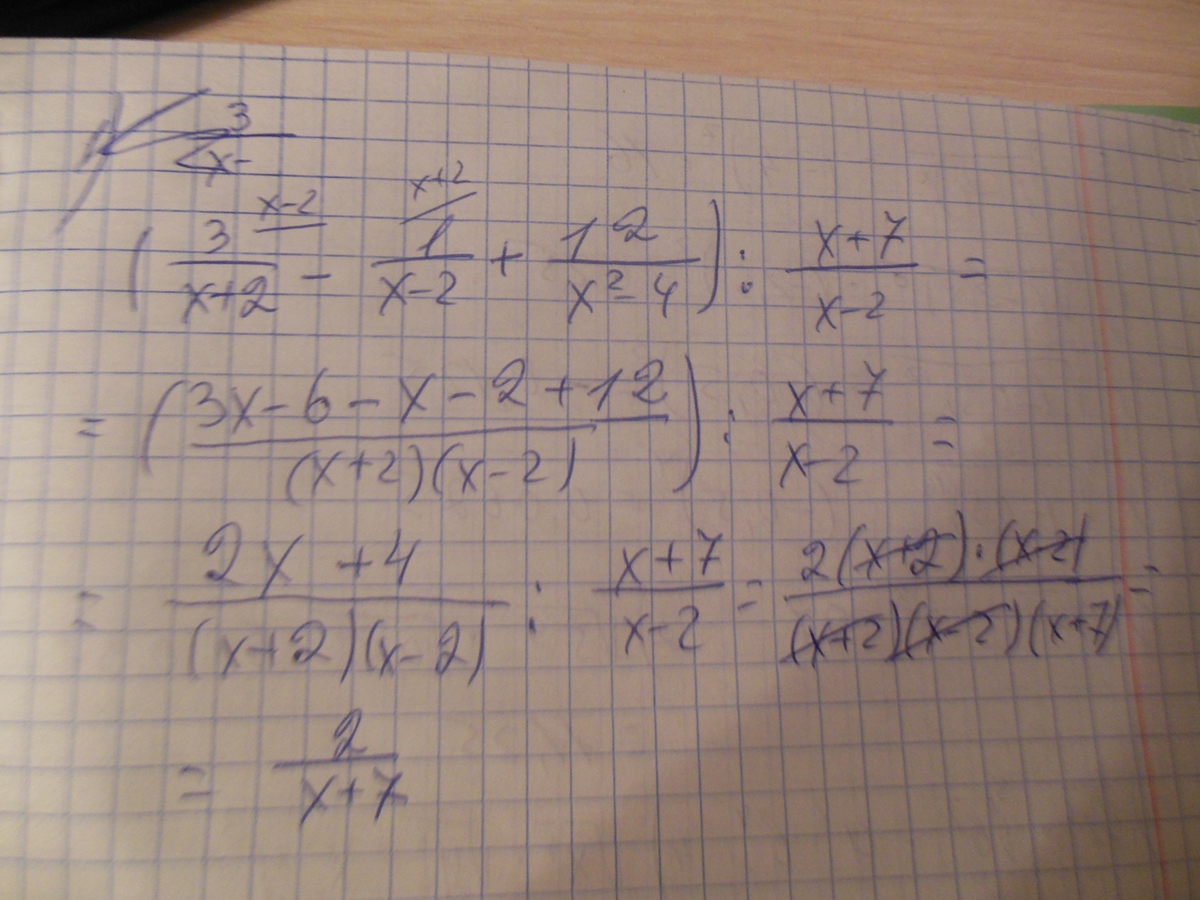 3/(x-
(3/(x+2) ^(x-2) - 1/(x-2) ^(x+2) + 12/(x²-4)) : (x+7)/(x-2) =
= ((3x-6-x-2+12)/((x+2)(x-2))) : (x+7)/(x-2) =
= (2x+4)/((x+2)(x-2)) : (x+7)/(x-2) = (2(x+2)·(x-2))/((x+2)(x-2)(x+7)) =
= 2/(x+7)